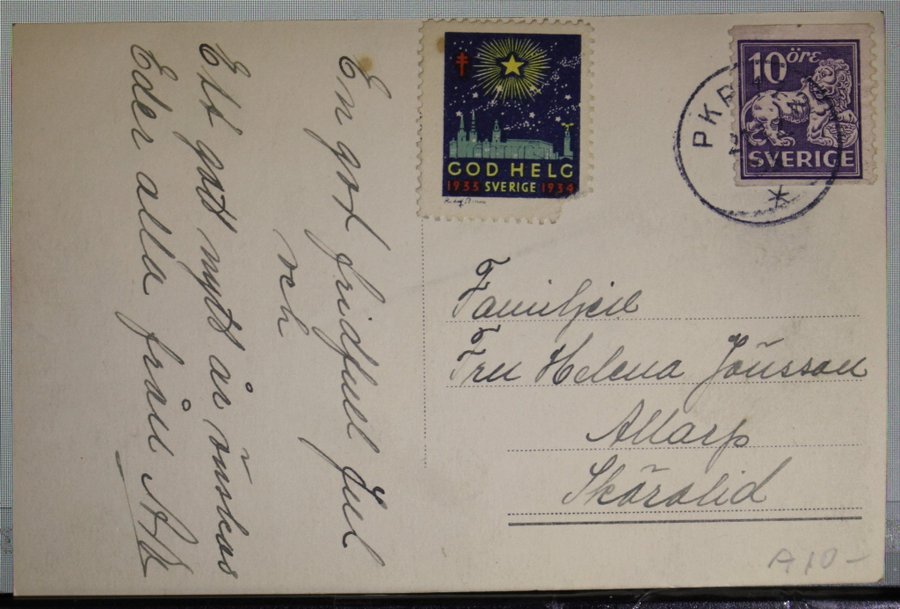 En god fridfull Jul
och
Ett gott nytt år önskas
Eder alla från
GOD HELG
1933 SVERIGE 1934
10 öre
SVERIGE
PKP
Familjen
Fru Helena Jönsson
Allarp
Skäralid
A10-